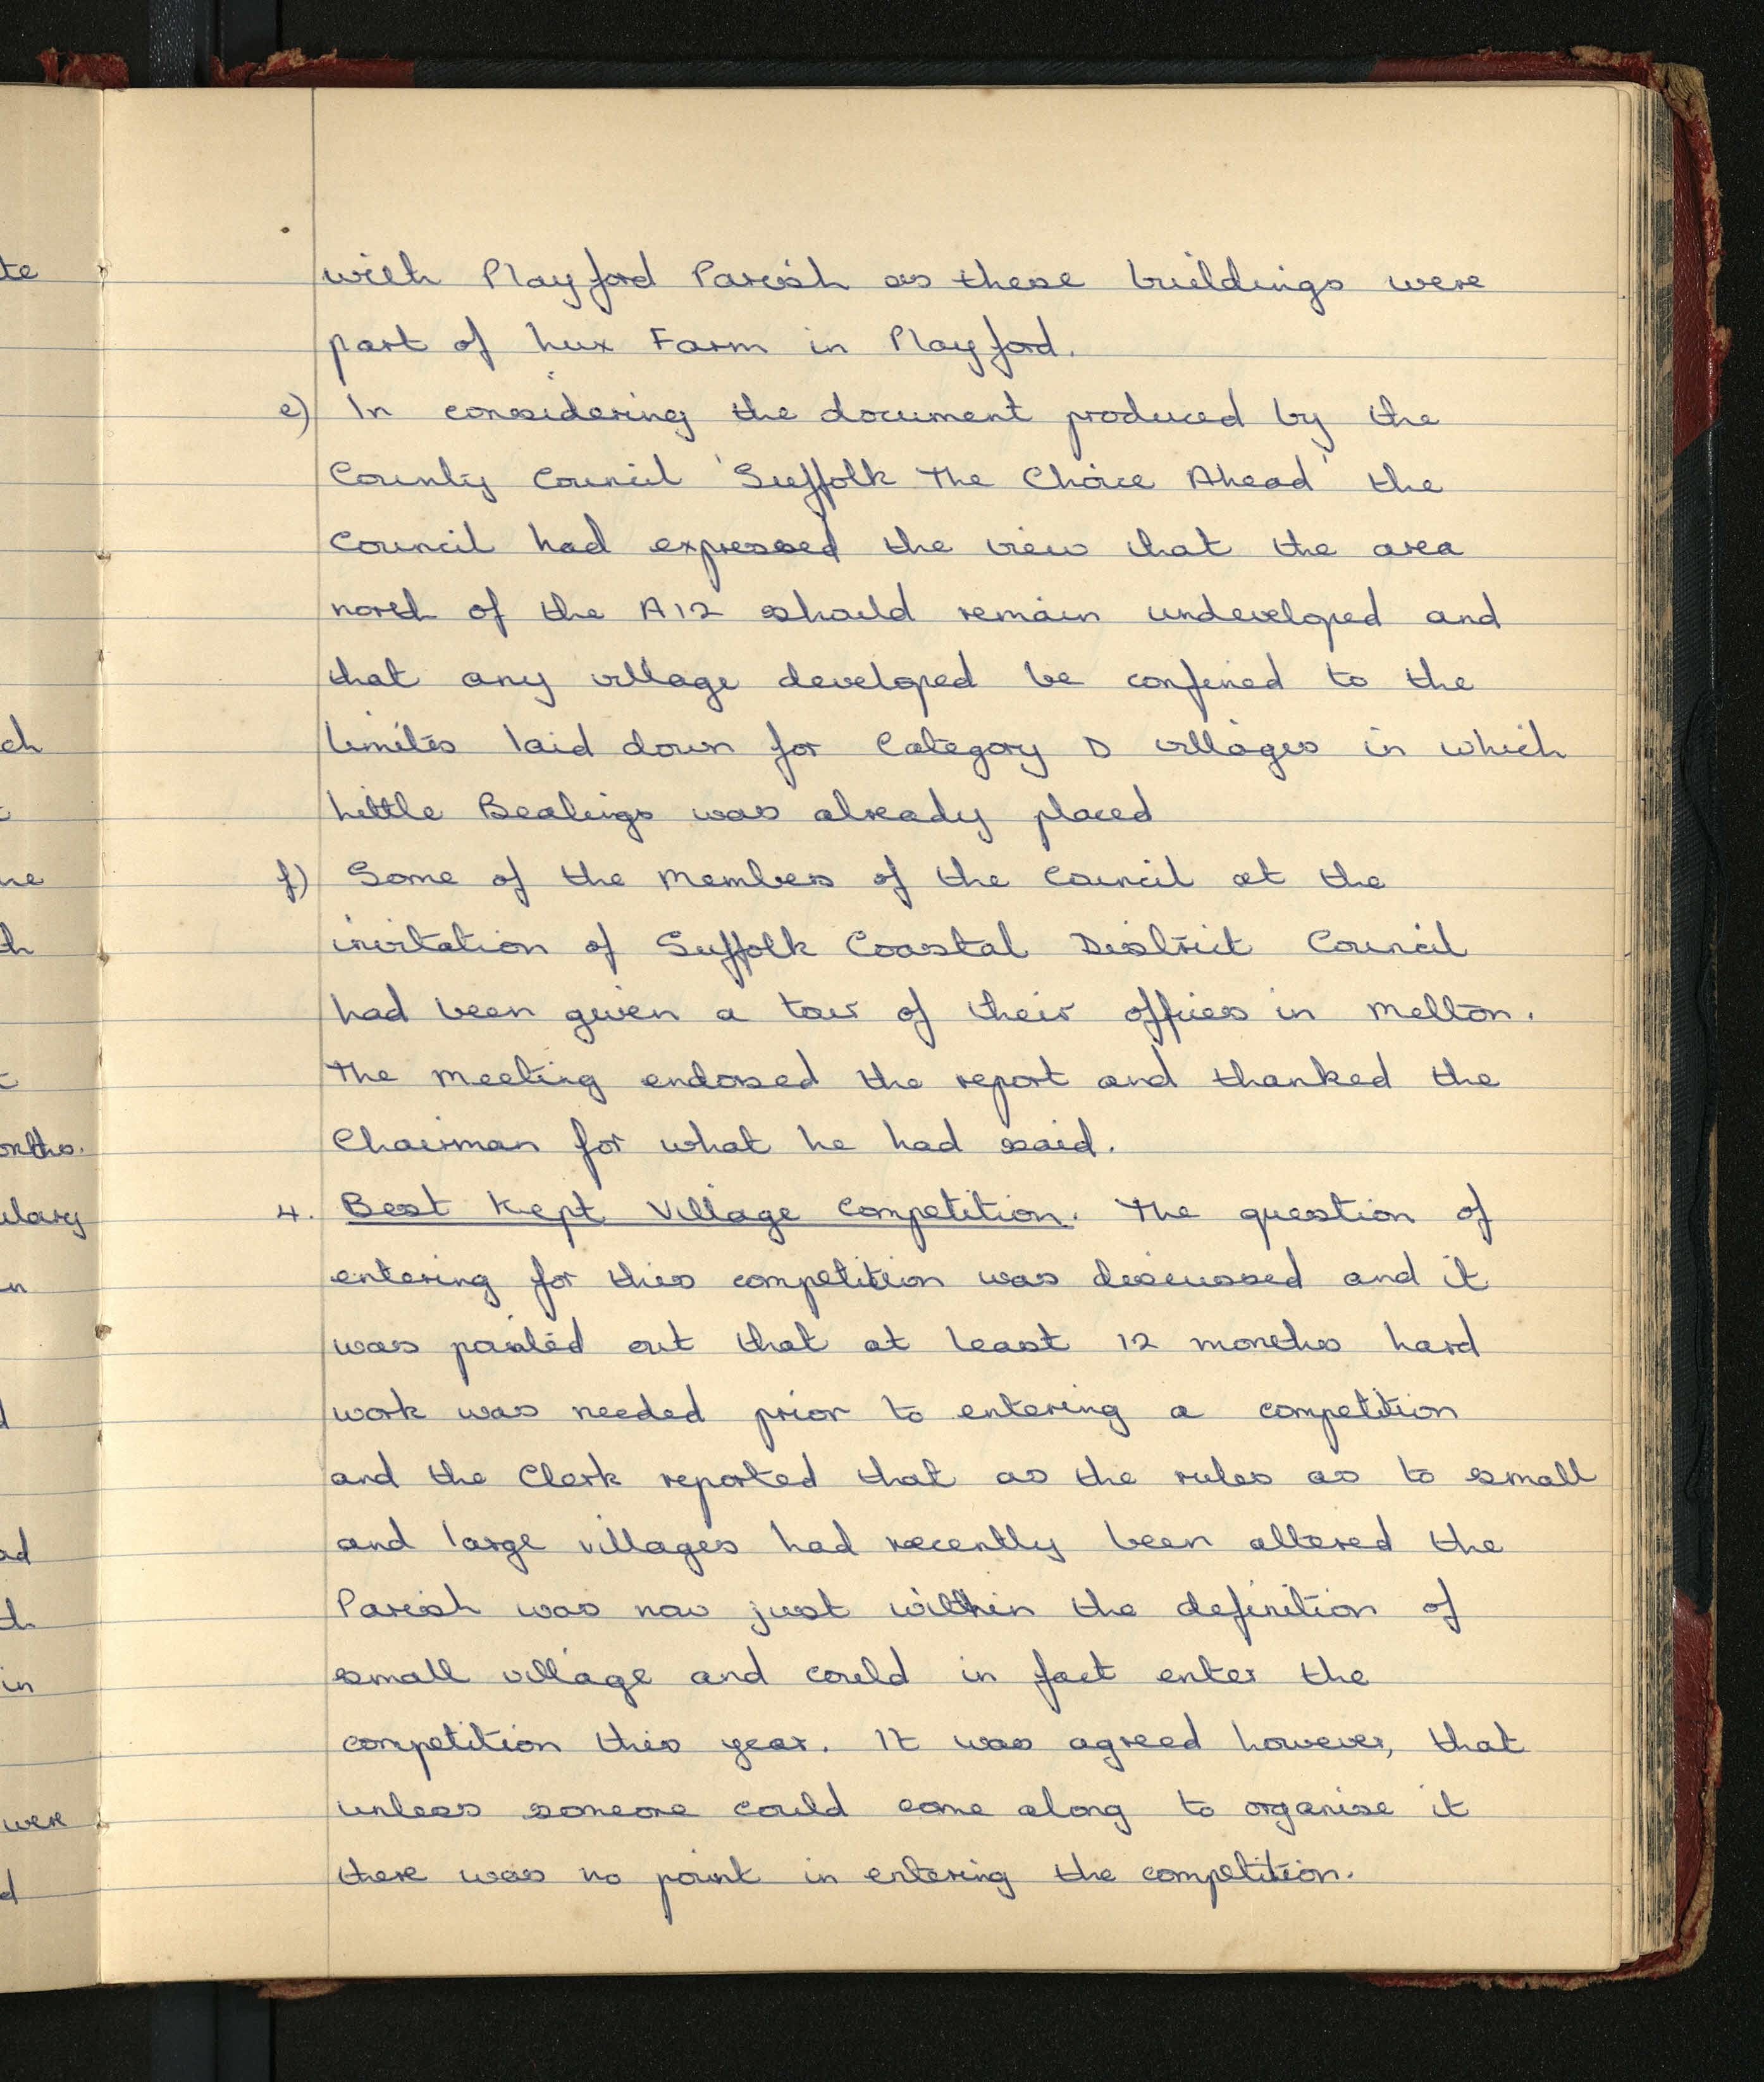 with Playford Parish as these buildings were
part of Lux Farm in Playford.
e) In considering the document produced by the
County Council 'Suffolk The Choice Ahead' the
Council had expressed the view that the area
north of the A12 should remain undeveloped and
that any village developed be confined to the
limits laid down for Category D villages in which
Little Bealings was already placed
f) Some of the Members of the Council at the
invitation of Suffolk Coastal District Council
had been given a tour of their offices in Melton.
The meeting endorsed the report and thanked the
Chairman for what he had said.
4. Best Kept Village Competition. The question of
entering for this competition was discussed and it
was pointed out that at least 12 months hard
work was needed prior to entering a competition
and the Clerk reported that as the rules as to small
and large villages had recently been altered the
Parish was now just within the definition of
small village and could in fact enter the
competition this year. It was agreed however, that
unless someone could come along to organise it
there was no point in entering the competition.